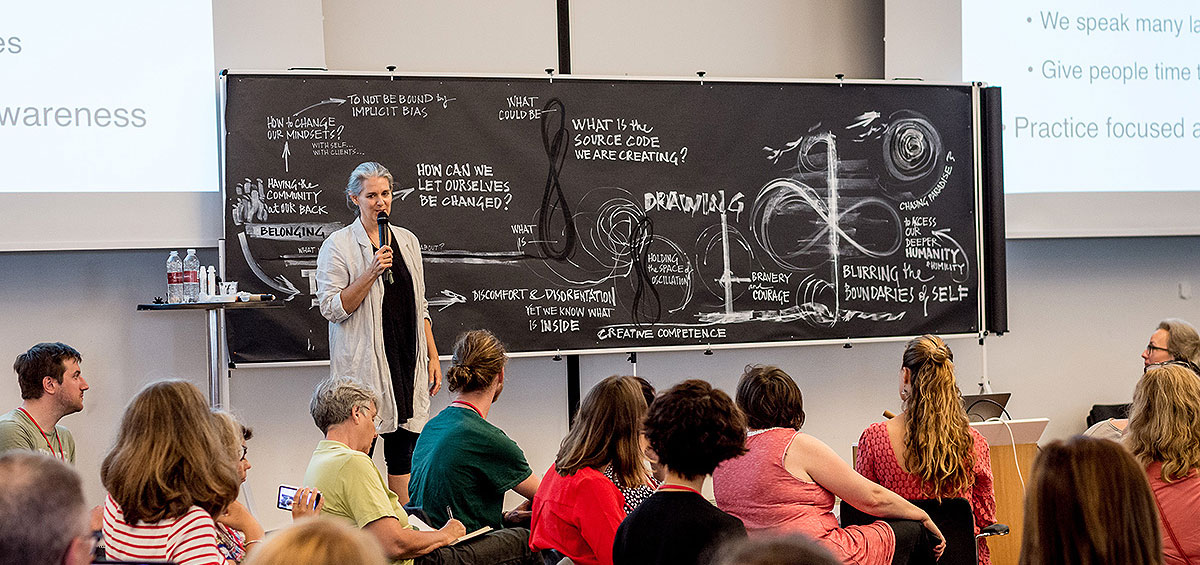 es
wareness
HOW to CHANGE
OUR MINDSETS?
WITH SELF...
WITH CLIENTS...
TO NOT BE BOUND by
IMPLICIT BIAS
HAVING the
COMMUNITY
at OUR BACK
BELONGING
HOW CAN WE
LET OURSELVES
BE CHANGED?
WHAT
COULD BE
WHAT IS the
SOURCE CODE
WE ARE CREATING?
WHAT
IS
DISCOMFORT & DISORENTATION
YET WE KNOW WHAT
is INSIDE
DRAWING
HOLDING
the SPACE of
OSCILLATION
CREATIVE COMPETENCE
BRAVERY
and
COURAGE
CHASING PARADISE?
to ACCESS
OUR
DEEPER
HUMANITY
& HUMILITY
BLURRING the
BOUNDARIES of SELF
• We speak many la
• Give people time t
• Practice focused a